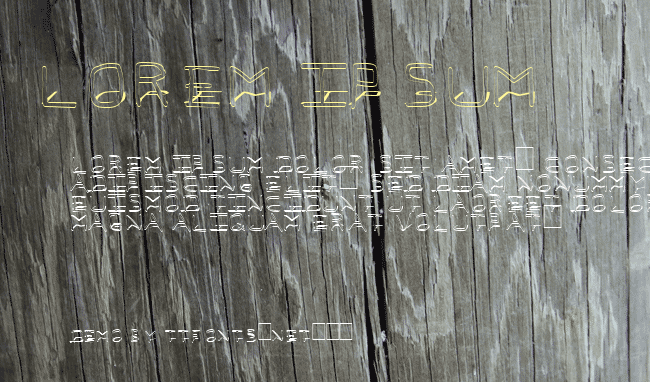 LOREM IPSUM
LOREM IPSUM DOLOR SIT AMET□ CONSEC
ADIPISCING ELIT□ SED DIAM NONUMMY
EUISMOD TINCIDUNT UT LAOREET DOLOR
MAGNA ALIQUAM ERAT VOLUTPAT□
DEMO BY TTFONTS□NET□□□